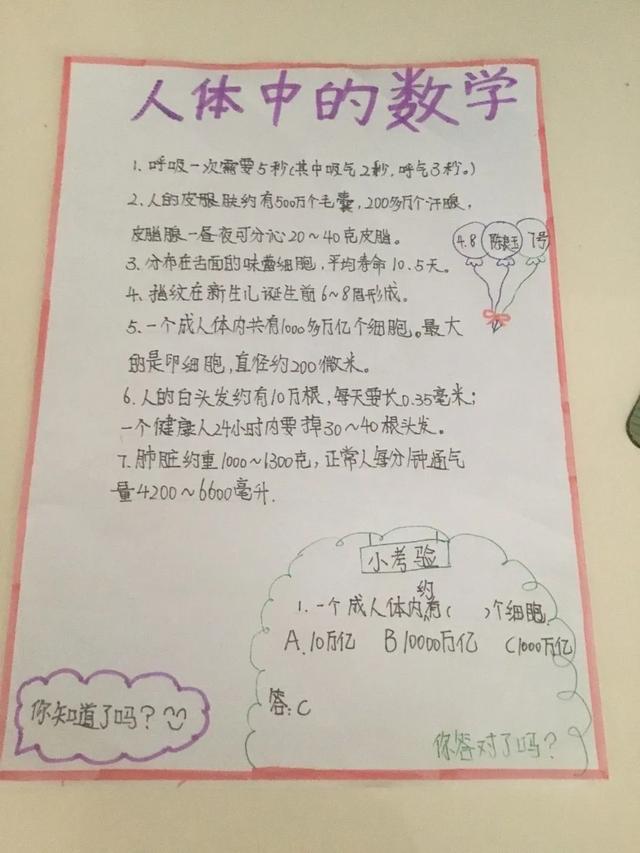 人体中的数学
1. 呼吸一次需要5秒(其中吸气2秒,呼气3秒。)
2. 人的皮肤约有500万个毛囊,200多万个汗腺,
皮脂腺一昼夜可分沁20～40克皮脂。
3. 分布在舌面的味蕾细胞,平均寿命10.5天。
4. 指纹在新生儿诞生前6～8周形成。
5. 一个成人体内共有1000多万亿个细胞。最大
的是卵细胞,直径约200微米。
6. 人的白头发约有10万根,每天要长0.35毫米;
一个健康人24小时内要掉30～40根头发。
7. 肺脏约重1000～1300克,正常人每分钟通气
量4200～6600毫升.
4.8
7号
小考验
1. 一个成人体内约有( )个细胞.
A.10万亿 B10000万亿 C1000万亿
答:C
你答对了吗?
你知道了吗?